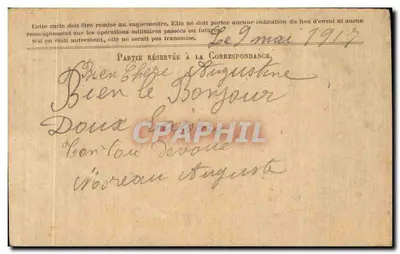 Cette carte doit être remise au vaguemestre. Elle ne doit porter aucune indication du lieu d'envoi ni aucun
renseignement sur les opérations militaires passées ou futures.
S'il en était autrement, elle ne serait pas transmise.
Le 9 mai 1917
PARTIE RÉSERVÉE À LA CORRESPONDANCE.
Bien Chère Augustine
Bien le Bonjour
Doux
CPARHIL
Ton devoué
Moreau Auguste